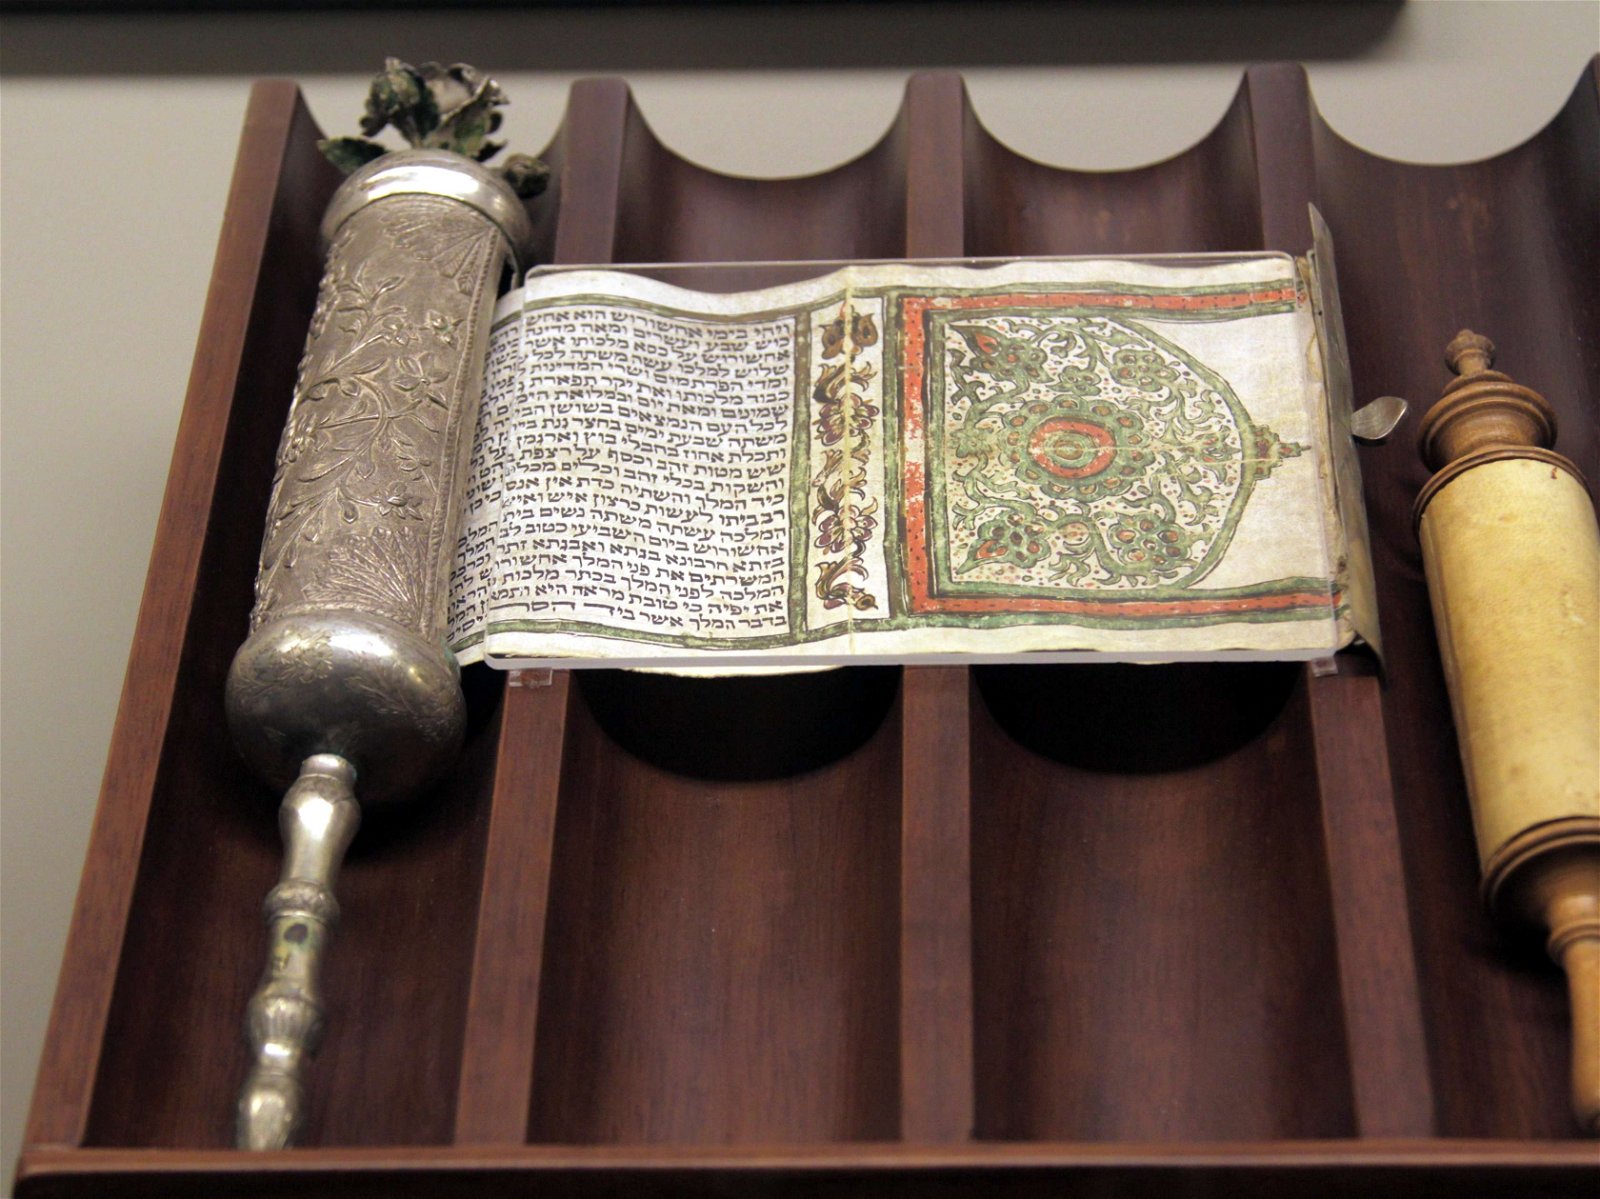 ויהי בימי אחשורוש הוא אחשורוש
כוש שבע ועשרים ומאה מדינה
אחשורוש על כסא מלכותו אשר
שלוש למלכו עשה משתה לכל
ומדי הפרתמים ושרי המדינות לפניו
כבוד מלכותו ואת יקר תפארת
שמונים ומאת יום ובמלואת הימים
לכל העם הנמצאים בשושן הבירה
משתה שבעת ימים בחצר גנת ביתן
ותכלת אחוז בחבלי בוץ וארגמן על
שש מטות זהב וכסף על רצפת
והשקות בכלי זהב וכלים מכלים שונים
כיד המלך והשתיה כדת אין אנס כי כן
רב ביתו לעשות כרצון איש ואיש
המלכה עשתה משתה נשים בית המלכות
אחשורוש ביום השביעי כטוב לב המלך
בזתא חרבונא בגתא ואבגתא זתר וכרכס
המשרתים את פני המלך אחשורוש
המלכה לפני המלך בכתר מלכות להראות
את יפיה כי טובת מראה היא ותמאן
בדבר המלך אשר ביד הסריסים